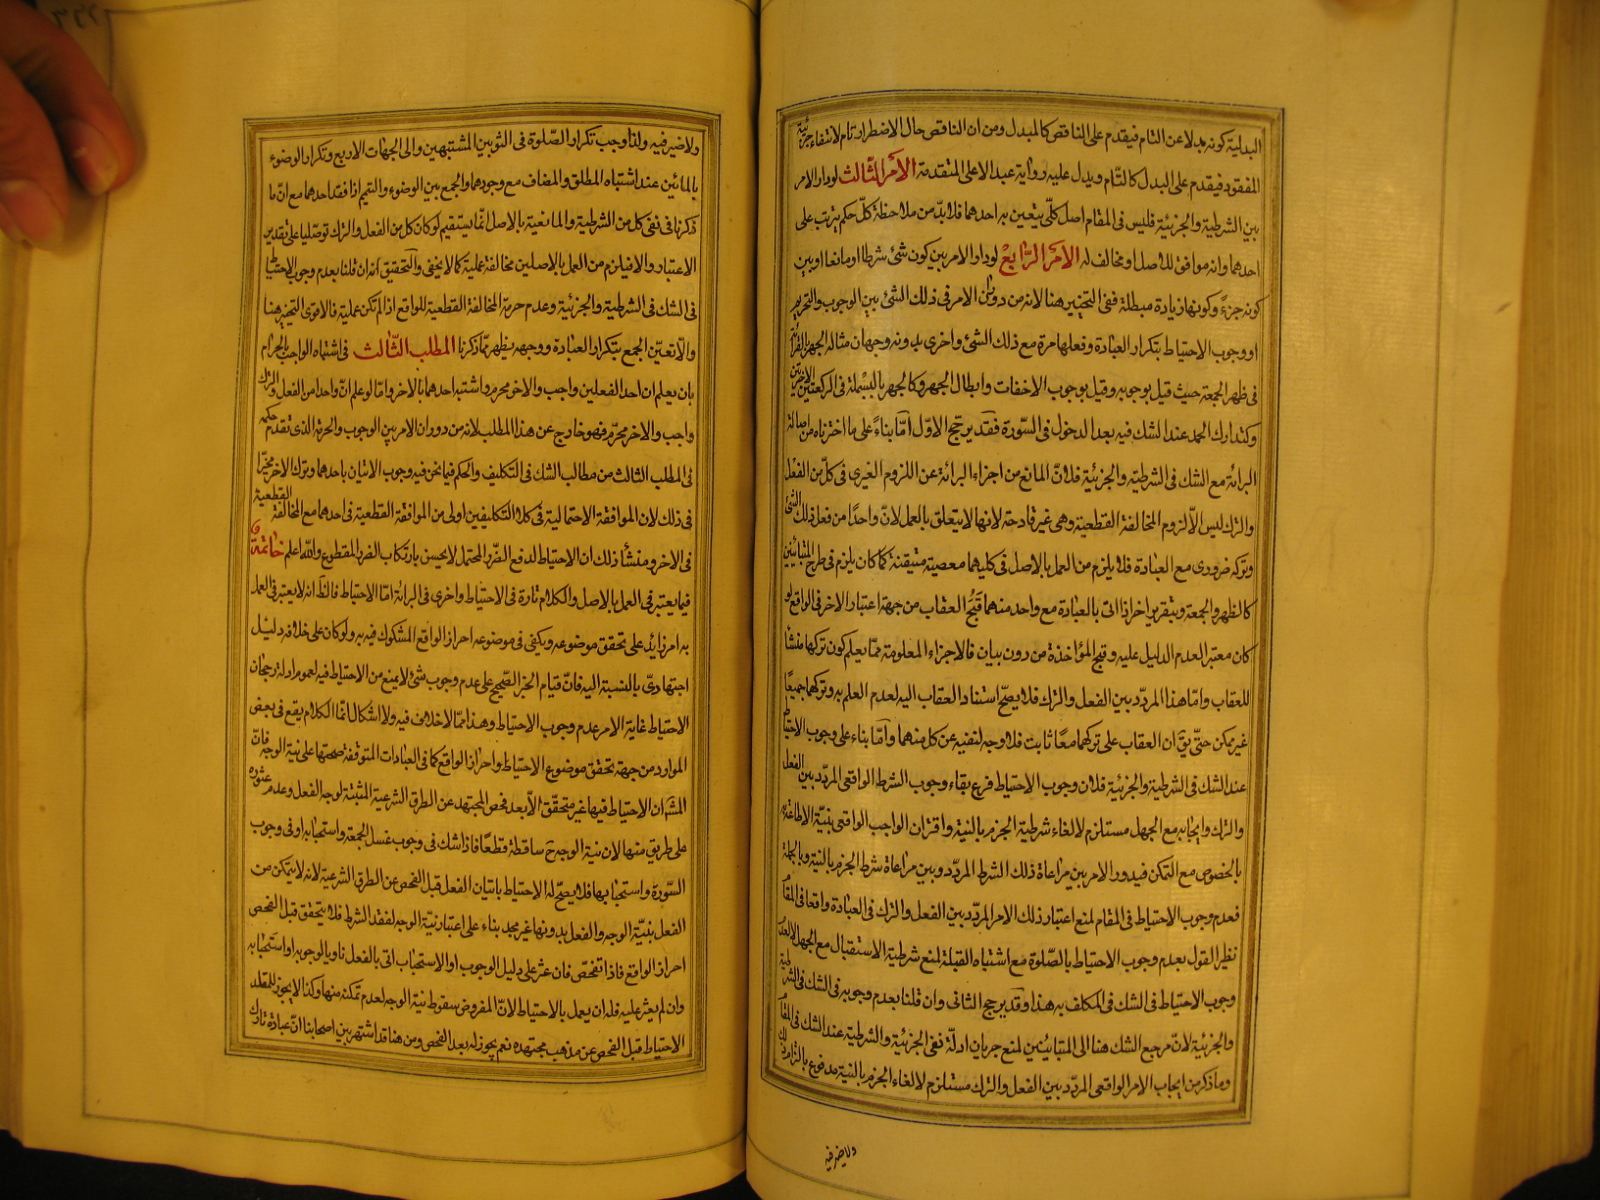 البدلية كونه بدلا عن التام فيقدم على الناقص كالمبدل ومن ان الناقص حال الاضطرار تام لانتفاء جزئية
المفقود فيقدم على البدل كالتام ويدل عليه رواية عبد الاعلى المتقدمة الأمر الثالث لودار الامر
بين الشرطية والجزئية فليس فى المقام اصل كلّى يتعين به احدهما فلا بدّ من ملاحظة كلّ حكم يترتب على
احدهما وانه موافق للاصل او مخالف له الأمر الرابع لو دار الامر بين كون شئ شرطا او مانعا او بين
كونه جزءً وكونها زيادة مبطلة ففى التخيير هنا لانه من دوران الامر فى ذلك الشئ بين الوجوب والتحريم
او وجوب الاحتياط بتكرار العبادة وفعلها مرة مع ذلك الشئ واخرى بدونه وجهان مثاله الجهر بالقرائة
فى ظهر الجمعة حيث قيل بوجوبه وقيل بوجوب الاخفات وابطال الجهر وكالجهر بالبسملة فى الركعتين الاخيرتين
وكتدارك الحمد عند الشك فيه بعد الدخول فى السّورة فقد يرجّح الاوّل امّا بناءً على ما اخترناه من اصالة
البرائة مع الشك فى الشرطية والجزئية فلانّ المانع من اجراء البرائة عن اللزوم الغيرى فى كلّ من الفعل
والترك ليس الّا لزوم المخالفة القطعية وهى غير قادحة لانها لا يتعلق بالعمل لانّ واحدًا من فعل ذلك الشئ
وتركه ضرورى مع العبادة فلا يلزم من العمل بالاصل فى كليهما معصية متيقنة كما كان يلزم فى طرح المتباينين
كالظهر والجمعة وبتقرير اخر اذا اتى بالعبادة مع واحد منهما قبح العقاب من جهة اعتبار الاخر فى الواقع لو
كان معتبر العدم الدليل عليه وقبح المؤاخذة من دون بيان فالاجزاء المعلومة ممّا يعلم كون تركها منشأ
للعقاب وامّا هذا المردّد بين الفعل والترك فلا يصحّ استناد العقاب اليه لعدم العلم به وتركهما جميعًا
غير ممكن حتّى يقَ ان العقاب على تركهما معًا ثابت فلا وجه لنفيه عن كل منهما وامّا بناء على وجوب الاحتياط
عند الشك فى الشرطية والجزئية فلان وجوب الاحتياط فرع بقاء وجوب الشرط الواقعى المردّد بين الفعل
والترك وايجابه مع الجهل مستلزم لالغاء شرطية الجزم بالنية واقتران الواجب الواقعى بنيّة الاطاعة به
بالخصوص مع التمكن فيدور الامر بين مراعاة ذلك الشرط المردّد وبين مراعاة شرط الجزم بالنية وبالجملة
فعدم وجوب الاحتياط فى المقام لمنع اعتبار ذلك الامر المردّد بين الفعل والترك فى العبادة واقعا فى المقام
نظير القول بعدم وجوب الاحتياط بالصّلوة مع اشتباه القبلة لمنع شرطية الاستقبال مع الجهل لا لعدم
وجوب الاحتياط فى الشك فى المكلف به هذا وقد يرجح الثانى وان قلنا بعدم وجوبه فى الشك فى الشرطية
والجزئية لانّ مرجع الشك هنا الى المتباينين لمنع جريان ادلّة نفى الجزئية والشرطية عند الشك فى المقام
وما ذكر من ايجاب الامر الواقعى المردّد بين الفعل والترك مستلزم لالغاء الجزم بالنية مدفوع بالتزام ذلك
ولا ضير فيه
ولا ضير فيه ولذا وجب تكرار الصّلوة فى الثوبين المشتبهين والى الجهات الاربع وتكرار الوضوء
بالمائين عند اشتباه المطلق والمضاف مع وجودهما والجمع بين الوضوء والتيمم اذا فقد احدهما مع انّ ما
ذكرنا فى نفى كل من الشرطية والمانعية بالاصل انّما يستقيم لو كان كل من الفعل والترك توصّليا على تقدير
الاعتبار والا فيلزم من العمل بالاصلين مخالفة عملية كما لا يخفى والتحقيق انه ان قلنا بعدم وجوب الاحتياط
فى الشك فى الشرطية والجزئية وعدم حرمة المخالفة القطعية للواقع اذا لم تكن عملية فالاقوى التخيير هنا
والّا تعيّن الجمع بتكرار العبادة ووجهه يظهر ممّا ذكرنا المطلب الثّالث فى اشتباه الواجب بالحرام
بان يعلم ان احد الفعلين واجب والاخر محرم واشتبه احدهما بالاخر وامّا لو علم انّ واحدا من الفعل والترك
واجب والاخر محرّم فهو خارج عن هذا المطلب لانه من دوران الامر بين الوجوب والحرمة الذى تقدم حكمه
فى المطلب الثالث من مطالب الشك فى التكليف والحكم فيما نحن فيه وجوب الاتيان باحدهما وترك الاخر مخيّرا
فى ذلك لان الموافقة الاحتمالية فى كلا التكليفين اولى من الموافقة القطعية فى احدهما مع المخالفة القطعية
فى الاخر ومنشأ ذلك ان الاحتياط لدفع الضّرر المحتمل لا يحسن بارتكاب الضرر المقطوع والله اعلم خاتمة
فيما يعتبر فى العمل بالاصل والكلام تارة فى الاحتياط واخرى فى البرائة امّا الاحتياط فالظَ انه لا يعتبر فى العمل
به امر زائد على تحقق موضوعه ويكفى فى موضوعه احراز الواقع المشكوك فيه به ولو كان على خلافه دليل
اجتهادىّ بالنسبة اليه فانّ قيام الخبر الصّحيح على عدم وجوب شئ لا يمنع من الاحتياط فيه لعموم ادلة رجحان
الاحتياط غاية الامر عدم وجوب الاحتياط وهذا ممّا لا خلاف فيه ولا اشكال انّما الكلام يقع فى بعض
الموارد من جهة تحقق موضوع الاحتياط واحراز الواقع كما فى العبادات المتوقفة صحتها على نية الوجه فانّ
المشهَ ان الاحتياط فيها غير متحقّق الّا بعد فحص المجتهد عن الطرق الشرعية المثبتة لوجه الفعل وعدم عثوره
على طريق منها لان نية الوجه حَ ساقطة قطعًا فاذا شك فى وجوب غسل الجمعة واستحبابه او فى وجوب
السّورة واستحبابها فلا يصحّ له الاحتياط باتيان الفعل قبل الفحص عن الطرق الشرعية لانه لا يتمكن من
الفعل بنيّة الوجه والفعل بدونها غير مجد بناء على اعتبار نيّة الوجه لفقد الشرط فلا يتحقق قبل الفحص
احراز الواقع فاذا تفحّص فان عثر على دليل الوجوب او الاستحباب اتى بالفعل ناويا لوجوبه او استحبابه
وان لم يعثر عليه فله ان يعمل بالاحتياط لانّ المفروض سقوط نية الوجه لعدم تمكنه منها وكذا لا يجوز للمقلد
الاحتياط قبل الفحص عن مذهب مجتهده نعم يجوز له بعد الفحص ومن هنا قد اشتهر بين اصحابنا انّ عبادة تارك